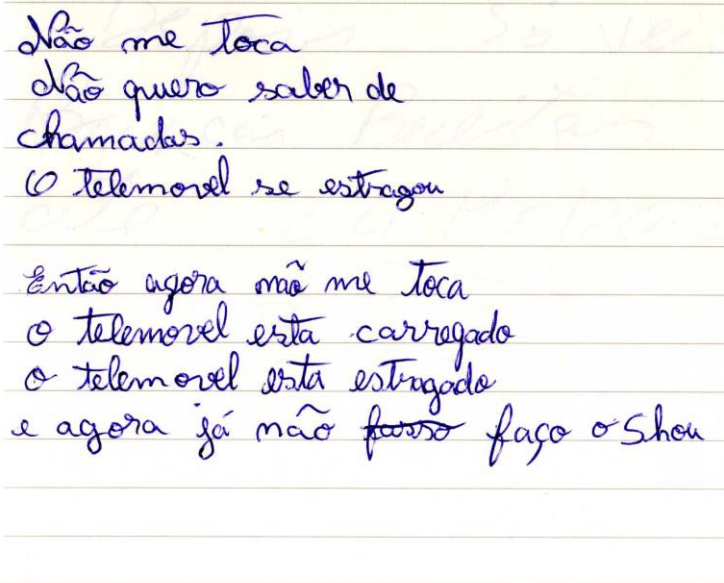 Não me toca
Não quero saber de
chamadas.
O telemovel se estragou
Então agora não me toca
o telemovel esta carregado
o telemovel esta estragado
e agora já não fasso faço o Shou